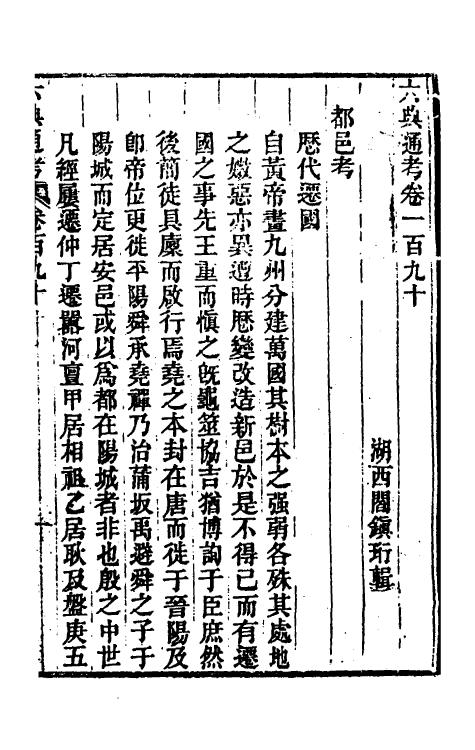 六典通考卷一百九十
湖西閻鎮珩輯
都邑考
歷代遷國
自黃帝畫九州分建萬國其樹本之强弱各殊其處地
之媺惡亦異遭時歷變改造新邑於是不得已而有遷
國之事先王重而愼之旣龜筮協吉猶博詢于臣庶然
後前徒具廩而啟行焉堯之本封在唐而徙于晉陽及
卽帝位更徙平陽舜承堯禪乃治蒲坂禹避舜之子于
陽城而定居安邑或以爲都在陽城者非也殷之中世
凡經屢遷仲丁遷囂河亶甲居相祖乙居耿及盤庚五
六典通考 卷百九十 一